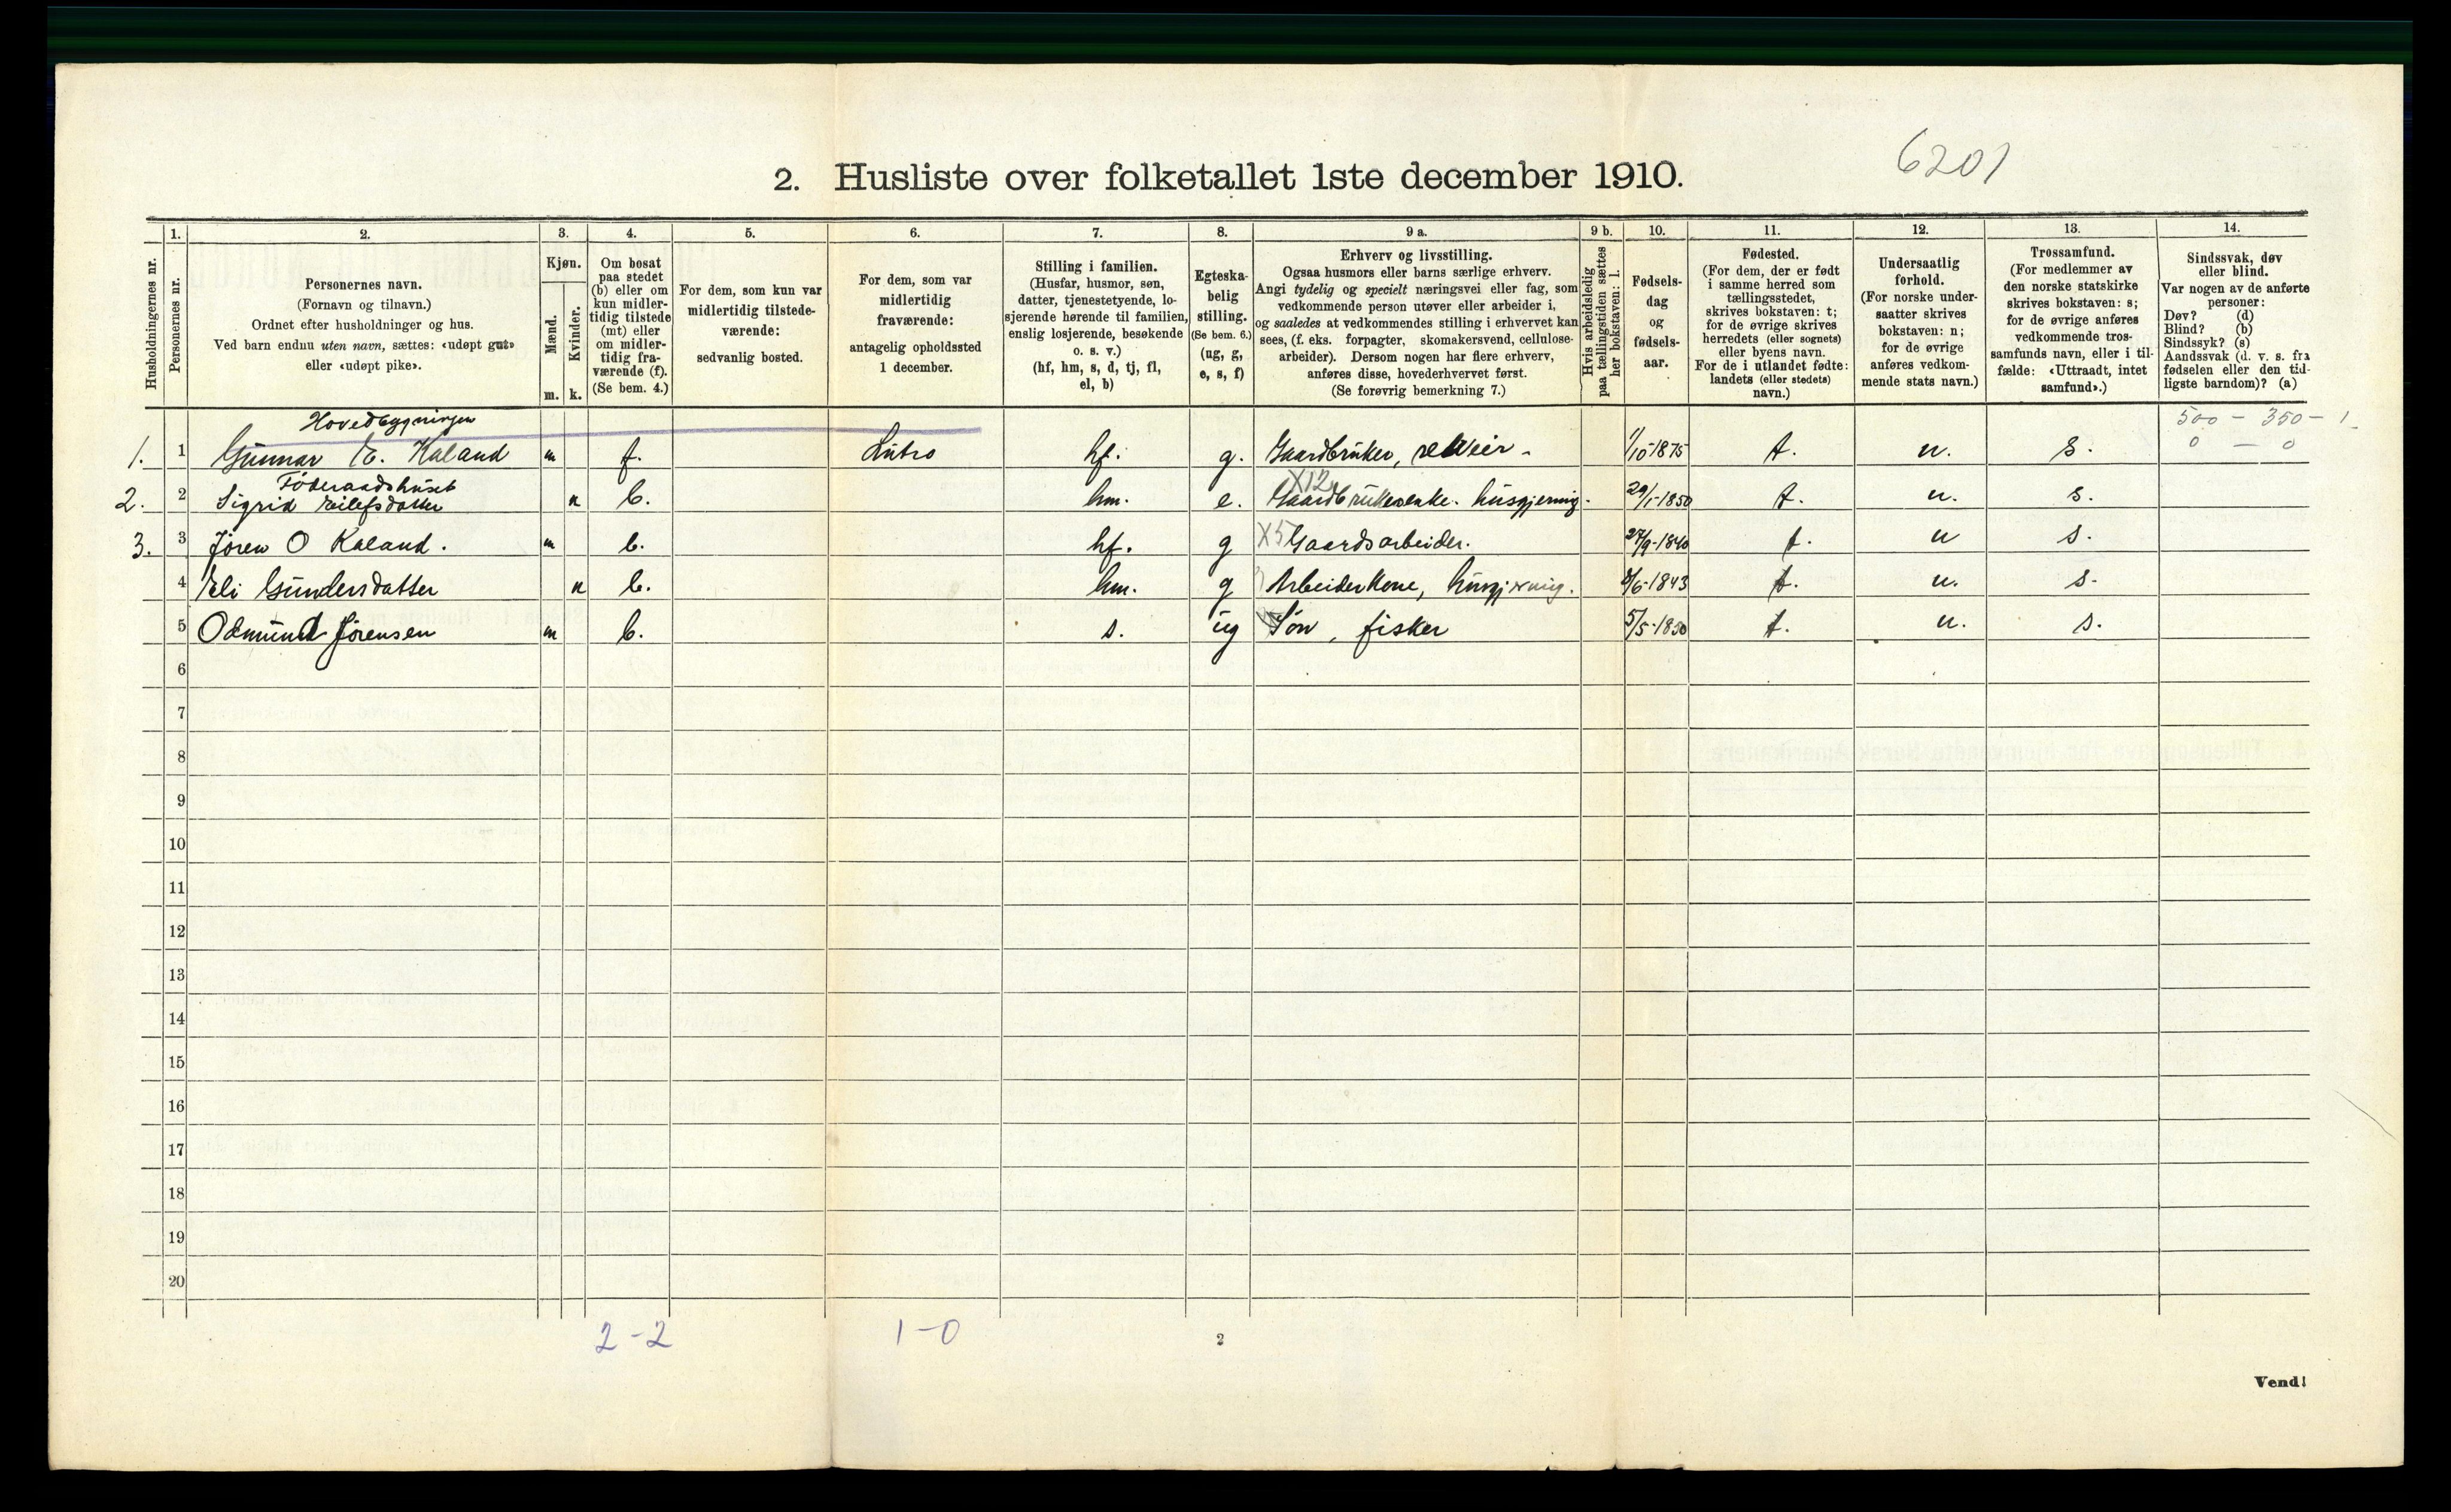 6201
2. Husliste over folketallet 1ste december 1910.
Husholdningernes nr.
1.
Personernes nr.
2.
Personernes navn.
(Fornavn og tilnavn.)
Ordnet efter husholdninger og hus.
Ved barn endnu uten navn, sættes: «udøpt gut»
eller «udøpt pike».
3.
Kjøn.
Mænd.
Kvinder.
m. k.
4.
Om bosat
paa stedet
(b) eller om
kun midler-
tidig tilstede
(mt) eller
om midler-
tidig fra-
værende (f).
(Se bem. 4.)
5.
For dem, som kun var
midlertidig tilstede-
værende:
sedvanlig bosted.
6.
For dem, som var
midlertidig
fraværende:
antagelig opholdssted
1 december.
7.
Stilling i familien.
(Husfar, husmor, søn,
datter, tjenestetyende, lo-
sjerende hørende til familien,
enslig losjerende, besøkende
o. s. v.)
(hf, hm, s, d, tj, fl,
el, b)
8.
Egteska-
belig
stilling.
(Se bem. 6.)
(ug, g,
e, s, f)
9 a.
Erhverv og livsstilling.
Ogsaa husmors eller barns særlige erhverv.
Angi tydelig og specielt næringsvei eller fag, som
vedkommende person utøver eller arbeider i,
og saaledes at vedkommendes stilling i erhvervet kan
sees, (f. eks. forpagter, skomakersvend, cellulose-
arbeider). Dersom nogen har flere erhverv,
anføres disse, hovederhvervet først.
(Se forøvrig bemerkning 7.)
9 b.
Hvis arbeidsledig
paa tællingstiden sættes
her bokstaven: l.
10.
Fødsels-
dag
og
fødsels-
aar.
11.
Fødested.
(For dem, der er født
i samme herred som
tællingsstedet,
skrives bokstaven: t;
for de øvrige skrives
herredets (eller sognets)
eller byens navn.
For de i utlandet fødte:
landets (eller stedets)
navn.)
12.
Undersaatlig
forhold.
(For norske under-
saatter skrives
bokstaven: n;
for de øvrige
anføres vedkom-
mende stats navn.)
13.
Trossamfund.
(For medlemmer av
den norske statskirke
skrives bokstaven: s;
for de øvrige anføres
vedkommende tros-
samfunds navn, eller i til-
fælde: «Uttraadt, intet
samfund».)
14.
Sindssvak, døv
eller blind.
Var nogen av de anførte
personer:
Døv? (d)
Blind? (b)
Sindssyk? (s)
Aandssvak (d. v. s. fra
fødselen eller den tid-
ligste barndom)? (a)
Hovedbygningen
500 - 350 - 1
0 - 0
1. 1 Gunnar E. Kaland m f. Hutro hf. g. Gaardbruker, 1/10-1875 t. n. s.
Føderaadshuset
X12
2. 2 Sigrid Eilefsdatter k b. hm. e. Gaardbrukerenke. husgjerning. 29/1-1850 t. n. s.
3. 3 Jøren O Kaland. m b. hf. g X5 Gaardsarbeider. 27/9-1840 t. n s.
4 Eli Gundersdatter k b. hm. g Arbeiderkone, husgjerning. 8/6-1843 t. n. s.
5 Odmund Jørensen m b. s. ug Søn, fisker 5/5-1880 t. n. s.
6
7
8
9
10
11
12
13
14
15
16
17
18
19
20
2-2 1-0
2
Vend!